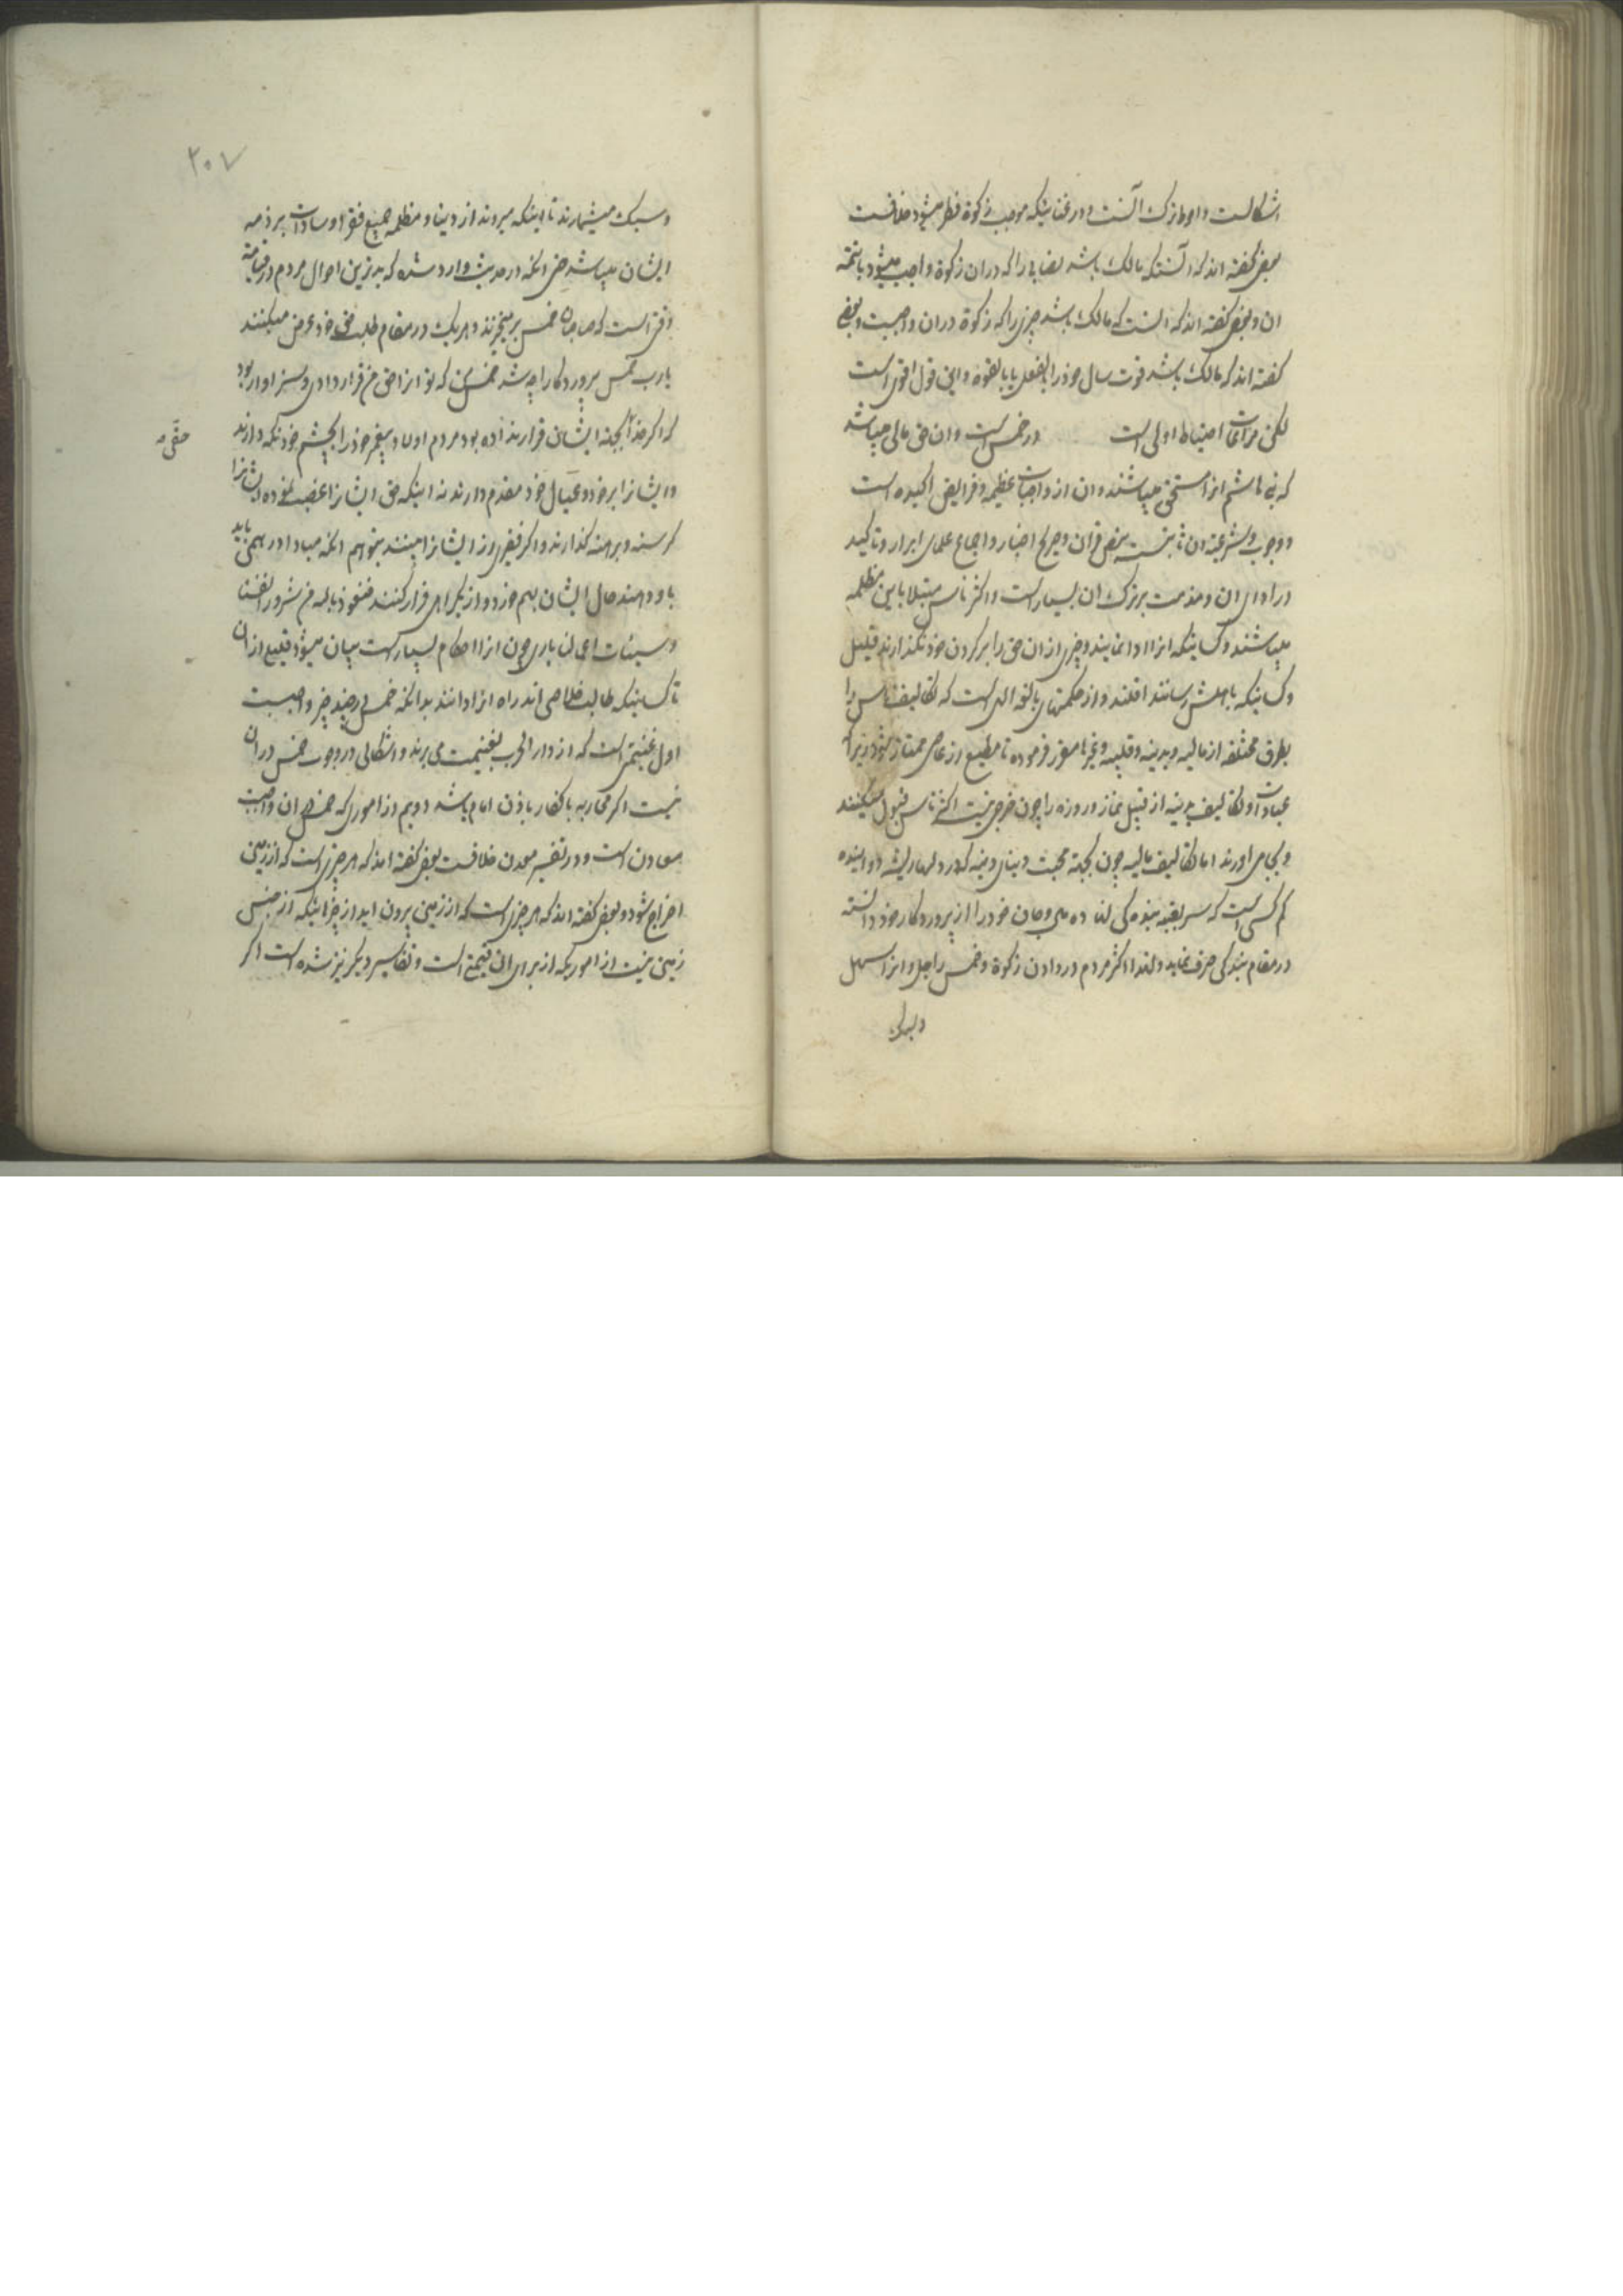 اشکالست و احوط ترک آنست و در غنائیکه موجب زکوة فطر میشود خلافست
بعضی گفته اند که آنستکه مالک باشد نصابی را که در ان زکوة واجب میشود یا قیمة
ان و بعضی گفته اند که آنست که مالک باشد چیزی را که زکوة در ان واجبست و بعضی
گفته اند که مالک باشد قوت سال خود را بالفعل یا بالقوه و این قول اقوی است
لکن مراعات احتیاط اولی است در خمس است و ان حق مالی میباشد
که بنی هاشم انرا مستحق میباشند و ان از واجبات عظیمه و فرایض اکیده است
و وجوب و شرعیة ان ثابتست بنص قران و صریح اخبار و اجماع علمای ابرار و تاکید
در ادای ان و مذمت بر ترک ان بسیار است و اکثر ناس مبتلا باین مظلمه
میباشند و کسانیکه انرا ادا نمایند و چیزی از ان حق را بر گردن خود نگذارند قلیل
و کسانیکه باهلش رسانند اقلند و از حکمتهای بالغه الهی است که تکالیف ناس را
بطرق مختلفه از مالیه و بدنیه و قلبیه و غیرها مقرر فرموده تا مطیع از عاصی ممتاز شود زیرا که
عبادات و تکالیف بدنیه از قبیل نماز و روزه را چون خرجی نیست اکثر ناس قبول میکنند
و بجا می اورند اما تکالیف مالیه چون بجهة محبت دنیای دنیه که در دلها ریشه دوانیده
کم کسی است که سر بقید بندگی نهاده مال و جان خود را از پروردگار خود دانسته
در مقام بندگی صرف نماید و لهذا اکثر مردم در دادن زکوة و خمس راجل و انرا سهل
و سبک
۲۰۷
و سبک میشمارند تا اینکه میروند از دنیا و مظلمه جمیع فقرا و سادات بر ذمه
ایشان میباشد حتی انکه در حدیث وارد شده که بدترین احوال مردم در قیامة
وقتی است که صاحبان خمس برمیخیزند و هر یک در مقام طلب حق خود عرض میکنند
یا رب خمس پروردگارا چه شد خمس من که تو انرا حق من قرار دادی و سزاوار بود
که اگر خدا بجهة ایشان قرار نداده بود مردم اولاد پیغمبر خود را بچشم خود نگه دارند
حقی
و ایشانرا بر خود و عیال خود مقدم دارند نه اینکه حق ایشانرا غصب نموده ایشانرا
گرسنه و برهنه گذارند و اگر فقیری از ایشانرا ببینند بتوهم انکه مبادا درهمی باید
باو دهند حال ایشان بهم خورد و از یک راهی فرار کنند فنعوذ بالله من شرور انفسنا
و سیئات اعمالنا باری چون انرا احکام بسیار است بیان میشود قلیلی از ان
تا کسانیکه طالب خلاصی اند راه انرا دانند بدانکه خمس در چند چیز واجبست
اول غنیمتی است که از دار الحرب بغنیمت می برند و اشکالی در وجوب خمس در ان
نیست اگر محاربه با کفار باذن امام باشد دویم از اموری که خمس در ان واجبست
معادن است و در تفسیر معدن خلافست بعضی گفته اند که هر چیزی است که از زمین
اخراج شود و بعضی گفته اند که هر چیزی است که از زمین بیرون اید از چیزهائیکه از جنس
زمین نیست از اموریکه از برای ان قیمتی است و تفاسیر دیگر نیز شده است اگر